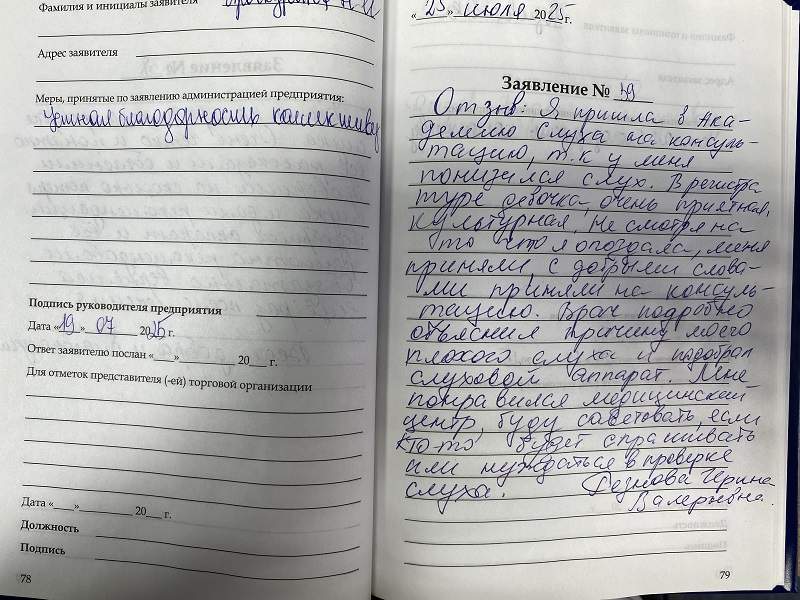 Фамилия и инициалы заявителя
Адрес заявителя
Меры, принятые по заявлению администрацией предприятия:
Устная благодарность
Подпись руководителя предприятия
Дата «19» 07 2025 г.
Ответ заявителю послан «___» ________ 20___ г.
Для отметок представителя (-ей) торговой организации
Дата «___» ________ 20___ г.
Должность
Подпись
78
«25» июля 2025г.
Заявление № 39
Отзыв: Я пришла в Ака-
демию Слуха на консуль-
тацию, т.к у меня
понизился слух. В регистра
туре девочка, очень приятная,
культурная. Не смотря на
то что я опоздала, меня
приняли, с добрыми слова-
ми приняли на консуль-
тацию. Врач подробно
объяснил причину моего
плохого слуха и подобрал
слуховой аппарат. Мне
понравился медицинский
центр, буду советовать, если
кто-то будет спрашивать
или нуждаться в проверке
слуха.
Валерьевна.
79